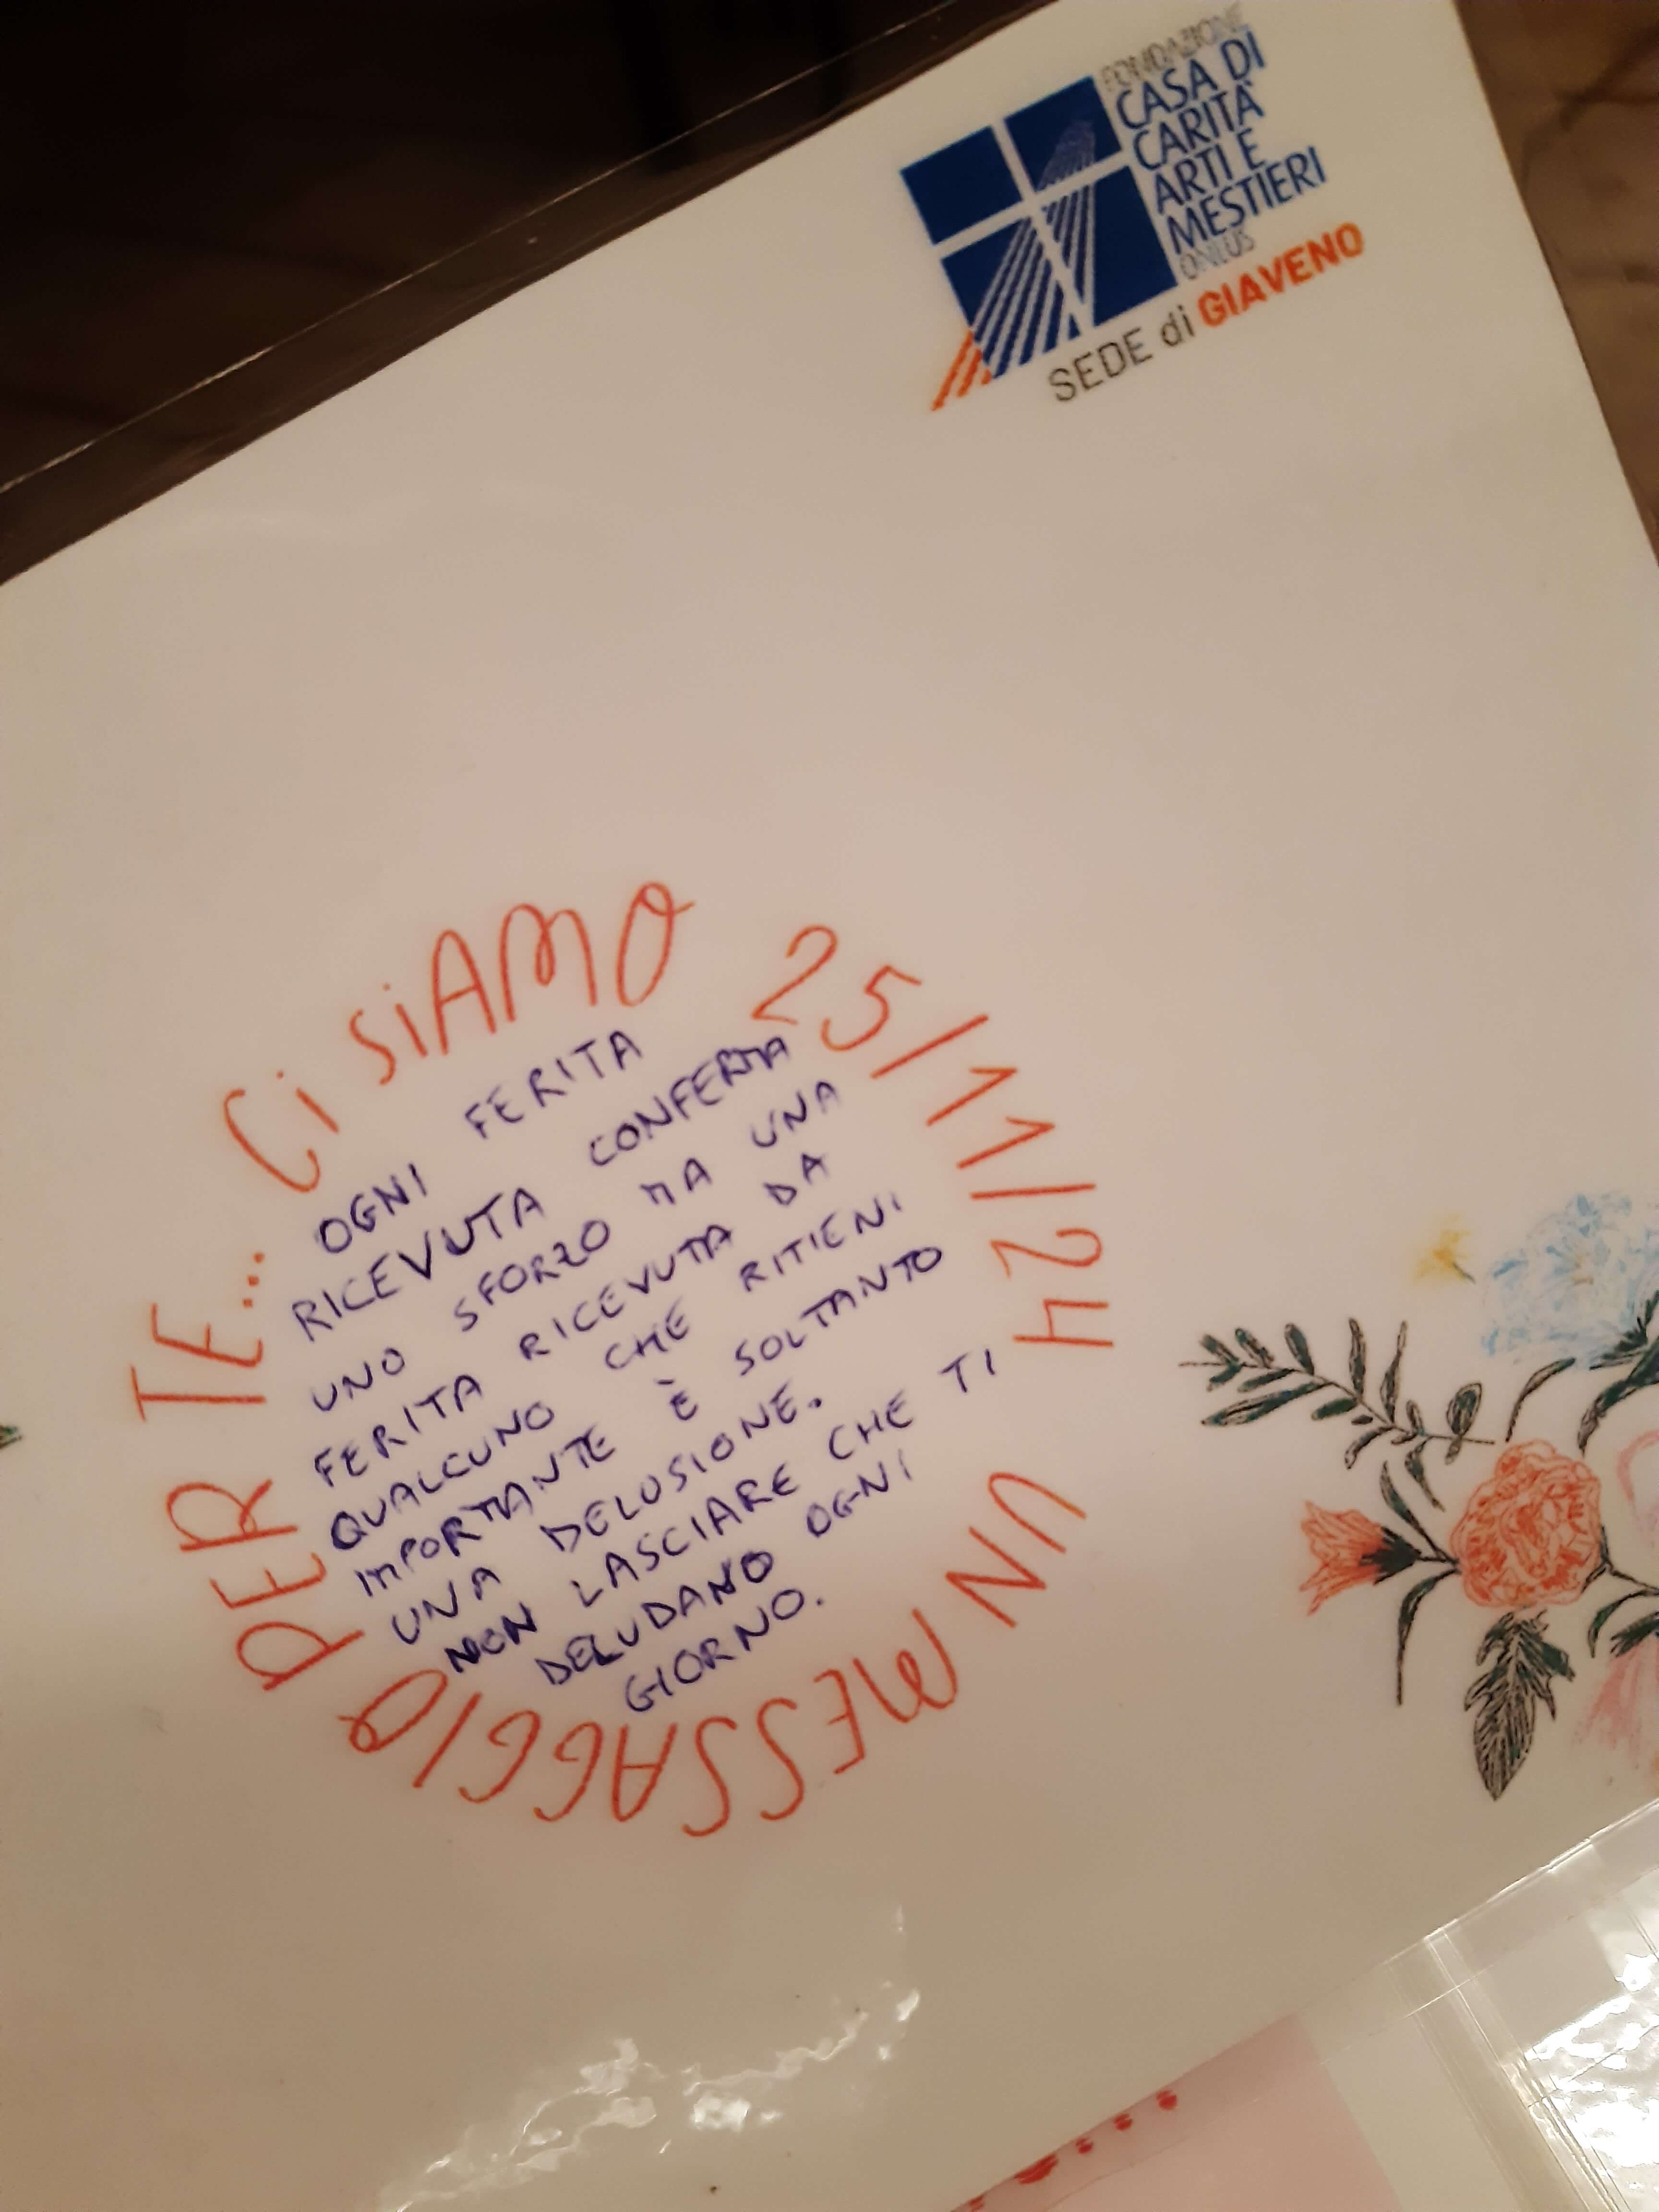 FONDAZIONE
CASA DI
CARITÀ
ARTI E
MESTIERI
ONLUS
SEDE di GIAVENO
UN MESSAGGIO PER TE... Ci SiAMO 25/11/24
OGNI FERITA
RICEVUTA CONFERMA
UNO SFORZO MA UNA
FERITA RICEVUTA DA
QUALCUNO CHE RITIENI
IMPORTANTE È SOLTANTO
UNA DELUSIONE.
NON LASCIARE CHE TI
DELUDANO OGNI
GIORNO.